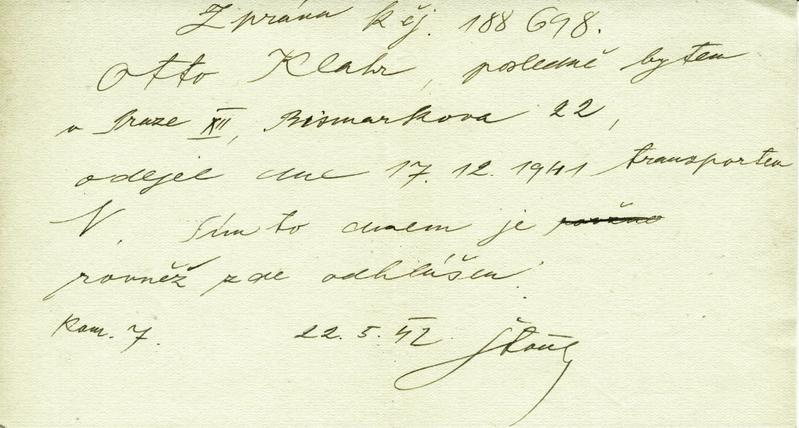 Zpráva k čj. 188698.
Otto Klahr, posledně bytem
v Praze XII, Bismarkova 22,
odejel dne 17. 12. 1941 transportem
N. Tímto dnem je
rovněž zde odhlášen.
Kom. 7. 22. 5. 42